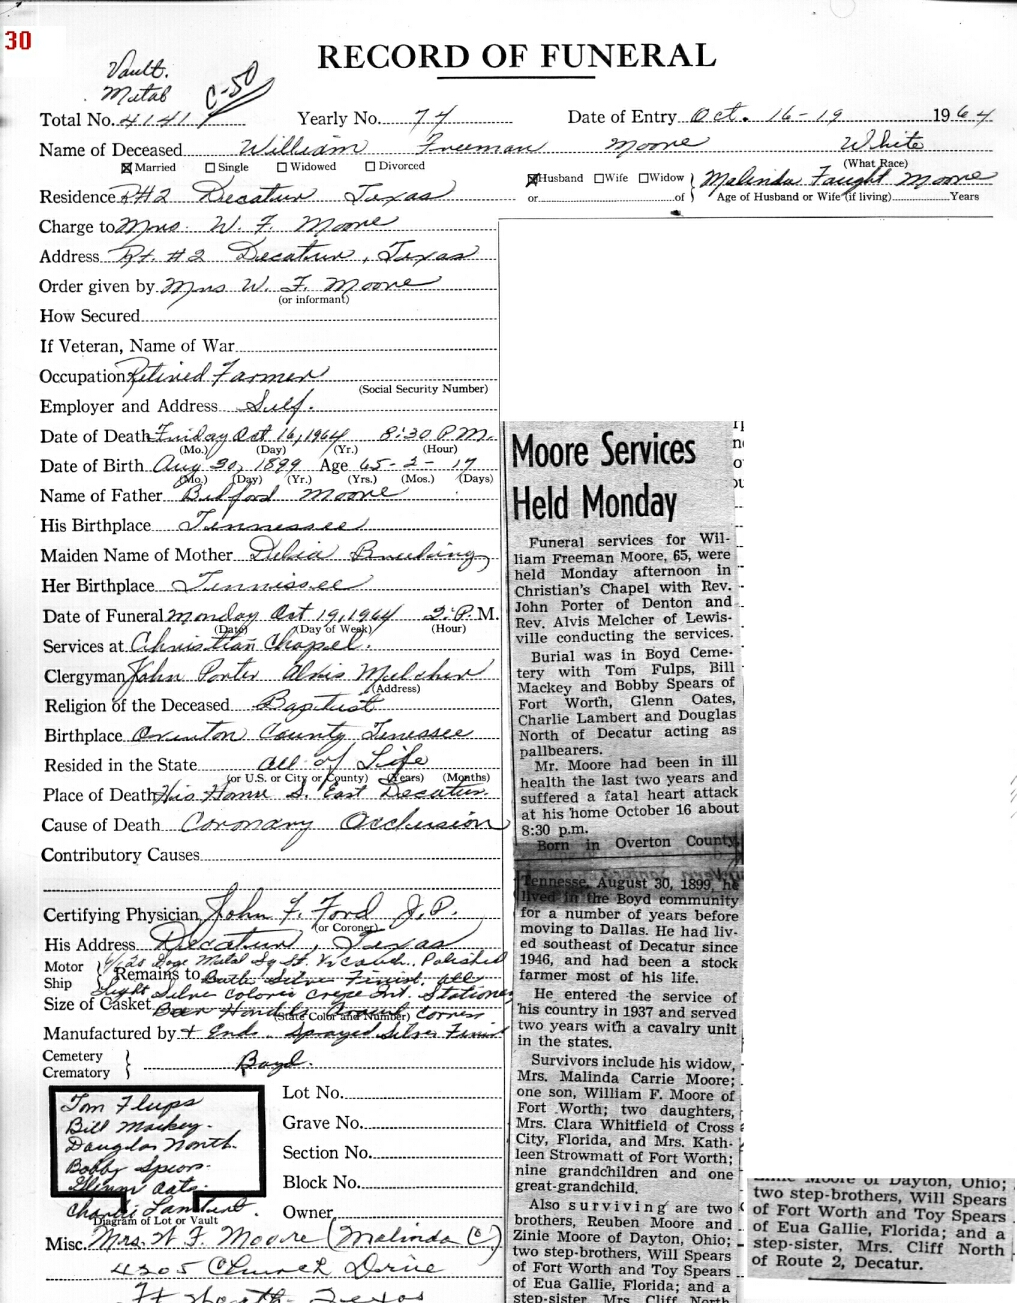 30
RECORD OF FUNERAL
Vault.
Metal
C-50
Total No. 4141 Yearly No. 74 Date of Entry Oct. 16-19 1964
Name of Deceased William Freeman Moore White
☒ Married ☐ Single ☐ Widowed ☐ Divorced (What Race)
☒ Husband ☐ Wife ☐ Widow } Malinda Faught Moore
or of Age of Husband or Wife (if living) Years
Residence Rt #2 Decatur Texas
Charge to Mrs. W. F. Moore
Address Rt. #2 Decatur, Texas
Order given by Mrs W. F. Moore
(or informant)
How Secured
If Veteran, Name of War
Occupation Retired Farmer
(Social Security Number)
Employer and Address Self.
Date of Death Friday Oct 16, 1964 8:30 P.M.
(Mo.) (Day) (Yr.) (Hour)
Date of Birth Aug 30, 1899 Age 65-2-17
(Mo.) (Day) (Yr.) (Yrs.) (Mos.) (Days)
Name of Father Bedford Moore
His Birthplace Tennessee
Maiden Name of Mother Delia
Her Birthplace Tennissee
Date of Funeral Monday Oct 19, 1964 2: P.M.
(Date) (Day of Week) (Hour)
Services at Christian Chapel.
Clergyman John Porter Alvis Melcher
(Address)
Religion of the Deceased Baptist
Birthplace Overton County Tenessee
Resided in the State All of Life
(or U.S. or City or County) (Years) (Months)
Place of Death His Home S. East Decatur.
Cause of Death Coronary Occlusion
Contributory Causes
Certifying Physician John F. Ford J.P.
(or Coroner)
His Address Decatur, Texas
Motor
Ship
Remains to
Metal Sq
Polished
Silver Finish. All
Light Silver Colored Crepe Int. Stationery
Size of Casket
(State Color and Number)
Corners
Manufactured by + End. Sprayed Silver Finish
Cemetery
Crematory } Boyd.
Tom Flups
Bill Mackey.
Douglas North.
Bobby Spears.
Glenn Oats.
Charlie Lambert.
Diagram of Lot or Vault
Lot No.
Grave No.
Section No.
Block No.
Owner
Misc. Mrs. W F. Moore (Malinda C.)
4205 Church Drive
Ft Worth, Texas
Moore Services
Held Monday
Funeral services for Wil-
liam Freeman Moore, 65, were
held Monday afternoon in
Christian's Chapel with Rev.
John Porter of Denton and
Rev. Alvis Melcher of Lewis-
ville conducting the services.
Burial was in Boyd Ceme-
tery with Tom Fulps, Bill
Mackey and Bobby Spears of
Fort Worth, Glenn Oates,
Charlie Lambert and Douglas
North of Decatur acting as
pallbearers.
Mr. Moore had been in ill
health the last two years and
suffered a fatal heart attack
at his home October 16 about
8:30 p.m.
Born in Overton County,
Tennesse, August 30, 1899, he
lived in the Boyd community
for a number of years before
moving to Dallas. He had liv-
ed southeast of Decatur since
1946, and had been a stock
farmer most of his life.
He entered the service of
his country in 1937 and served
two years with a cavalry unit
in the states.
Survivors include his widow,
Mrs. Malinda Carrie Moore;
one son, William F. Moore of
Fort Worth; two daughters,
Mrs. Clara Whitfield of Cross
City, Florida, and Mrs. Kath-
leen Strowmatt of Fort Worth;
nine grandchildren and one
great-grandchild.
Also surviving are two
brothers, Reuben Moore and
Zinie Moore of Dayton, Ohio;
two step-brothers, Will Spears
of Fort Worth and Toy Spears
of Eua Gallie, Florida; and a
step-sister, Mrs. Cliff North
Zinie Moore of Dayton, Ohio;
two step-brothers, Will Spears
of Fort Worth and Toy Spears
of Eua Gallie, Florida; and a
step-sister, Mrs. Cliff North
of Route 2, Decatur.